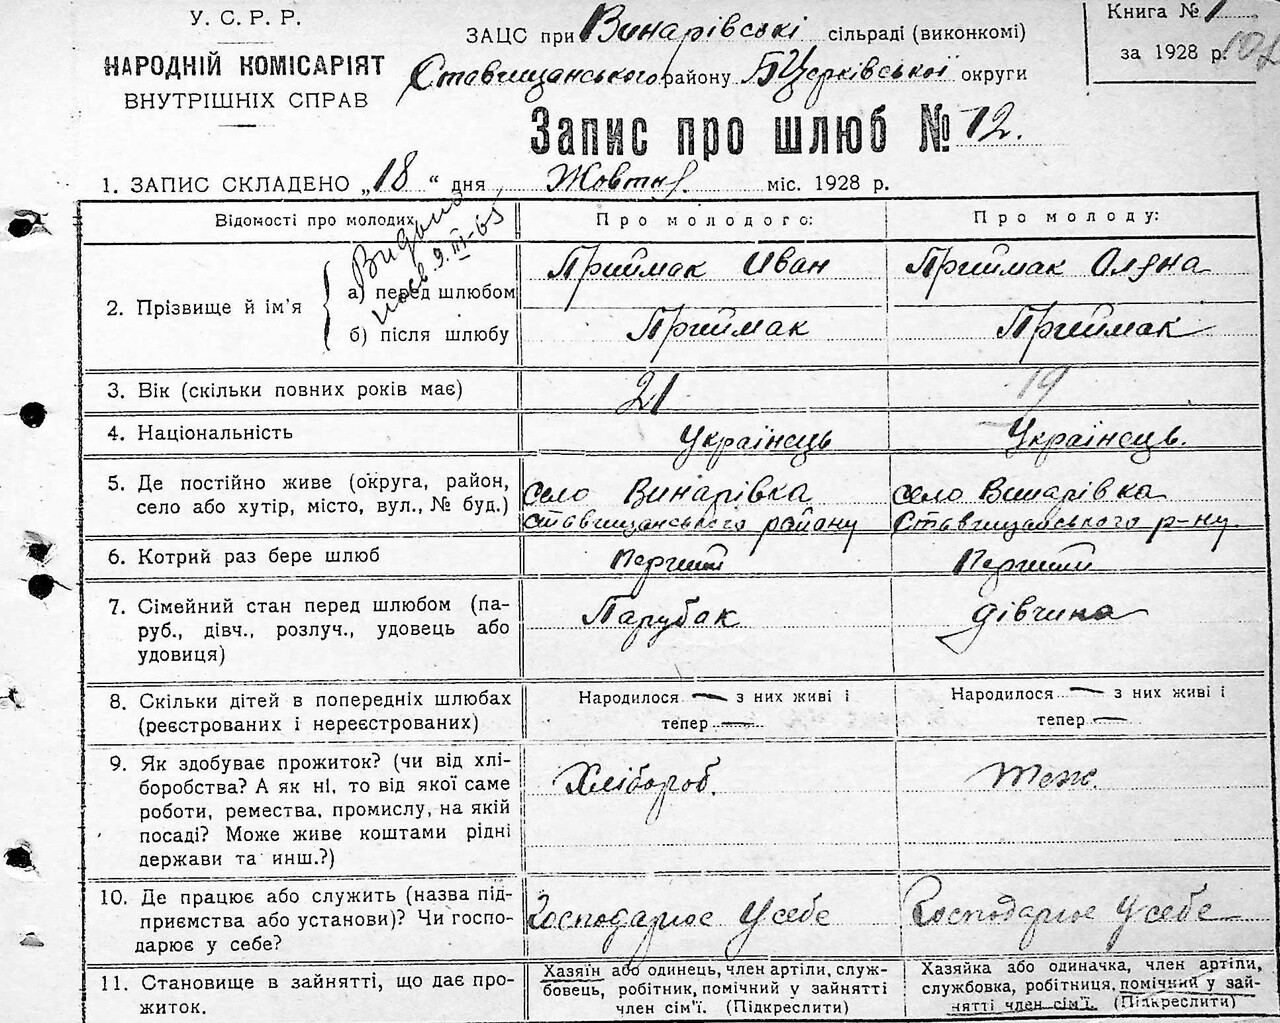 У. С. Р. Р.
НАРОДНІЙ КОМІСАРІЯТ
ВНУТРІШНІХ СПРАВ
ЗАЦС при Винарівські сільраді (виконкомі)
Ставищанського району Б Церківської округи
Книга № 1
за 1928 р.
Запис про шлюб № 12.
1. ЗАПИС СКЛАДЕНО „18“ дня Жовтня міс. 1928 р.
Відомості про молодих
Про молодого:
Про молоду:
Видано
9.III-65
2. Прізвище й ім’я
а) перед шлюбом
Приймак Иван
Приймак Оляна
б) після шлюбу
Приймак
Приймак
3. Вік (скільки повних років має)
21
19
4. Національність
Українець
Українець.
5. Де постійно живе (округа, район,
село або хутір, місто, вул., № буд.)
село Винарівка
ставищанського району
село Винарівка
Ставищанського р-ну
6. Котрий раз бере шлюб
Перший
Перший
7. Сімейний стан перед шлюбом (па-
руб., дівч., розлуч., удовець або
удовиця)
Парубак
дівчина
8. Скільки дітей в попередніх шлюбах
(реєстрованих і нереєстрованих)
Народилося — з них живі і
тепер —
Народилося — з них живі і
тепер —
9. Як здобуває прожиток? (чи від хлі-
боробства? А як ні, то від якої саме
роботи, ремества, промислу, на якій
посаді? Може живе коштами рідні
держави та инш.?)
Хлібороб.
теж.
10. Де працює або служить (назва під-
приємства або установи)? Чи госпо-
дарює у себе?
Господарює У себе
Господарює У себе
11. Становище в зайнятті, що дає про-
житок.
Хазяїн або одинець, член артіли, служ-
бовець, робітник, помічний у зайнятті
член сім’ї. (Підкреслити)
Хазяйка або одиначка, член артіли,
службовка, робітниця, помічний у зай-
нятті член сім’ї. (Підкреслити)